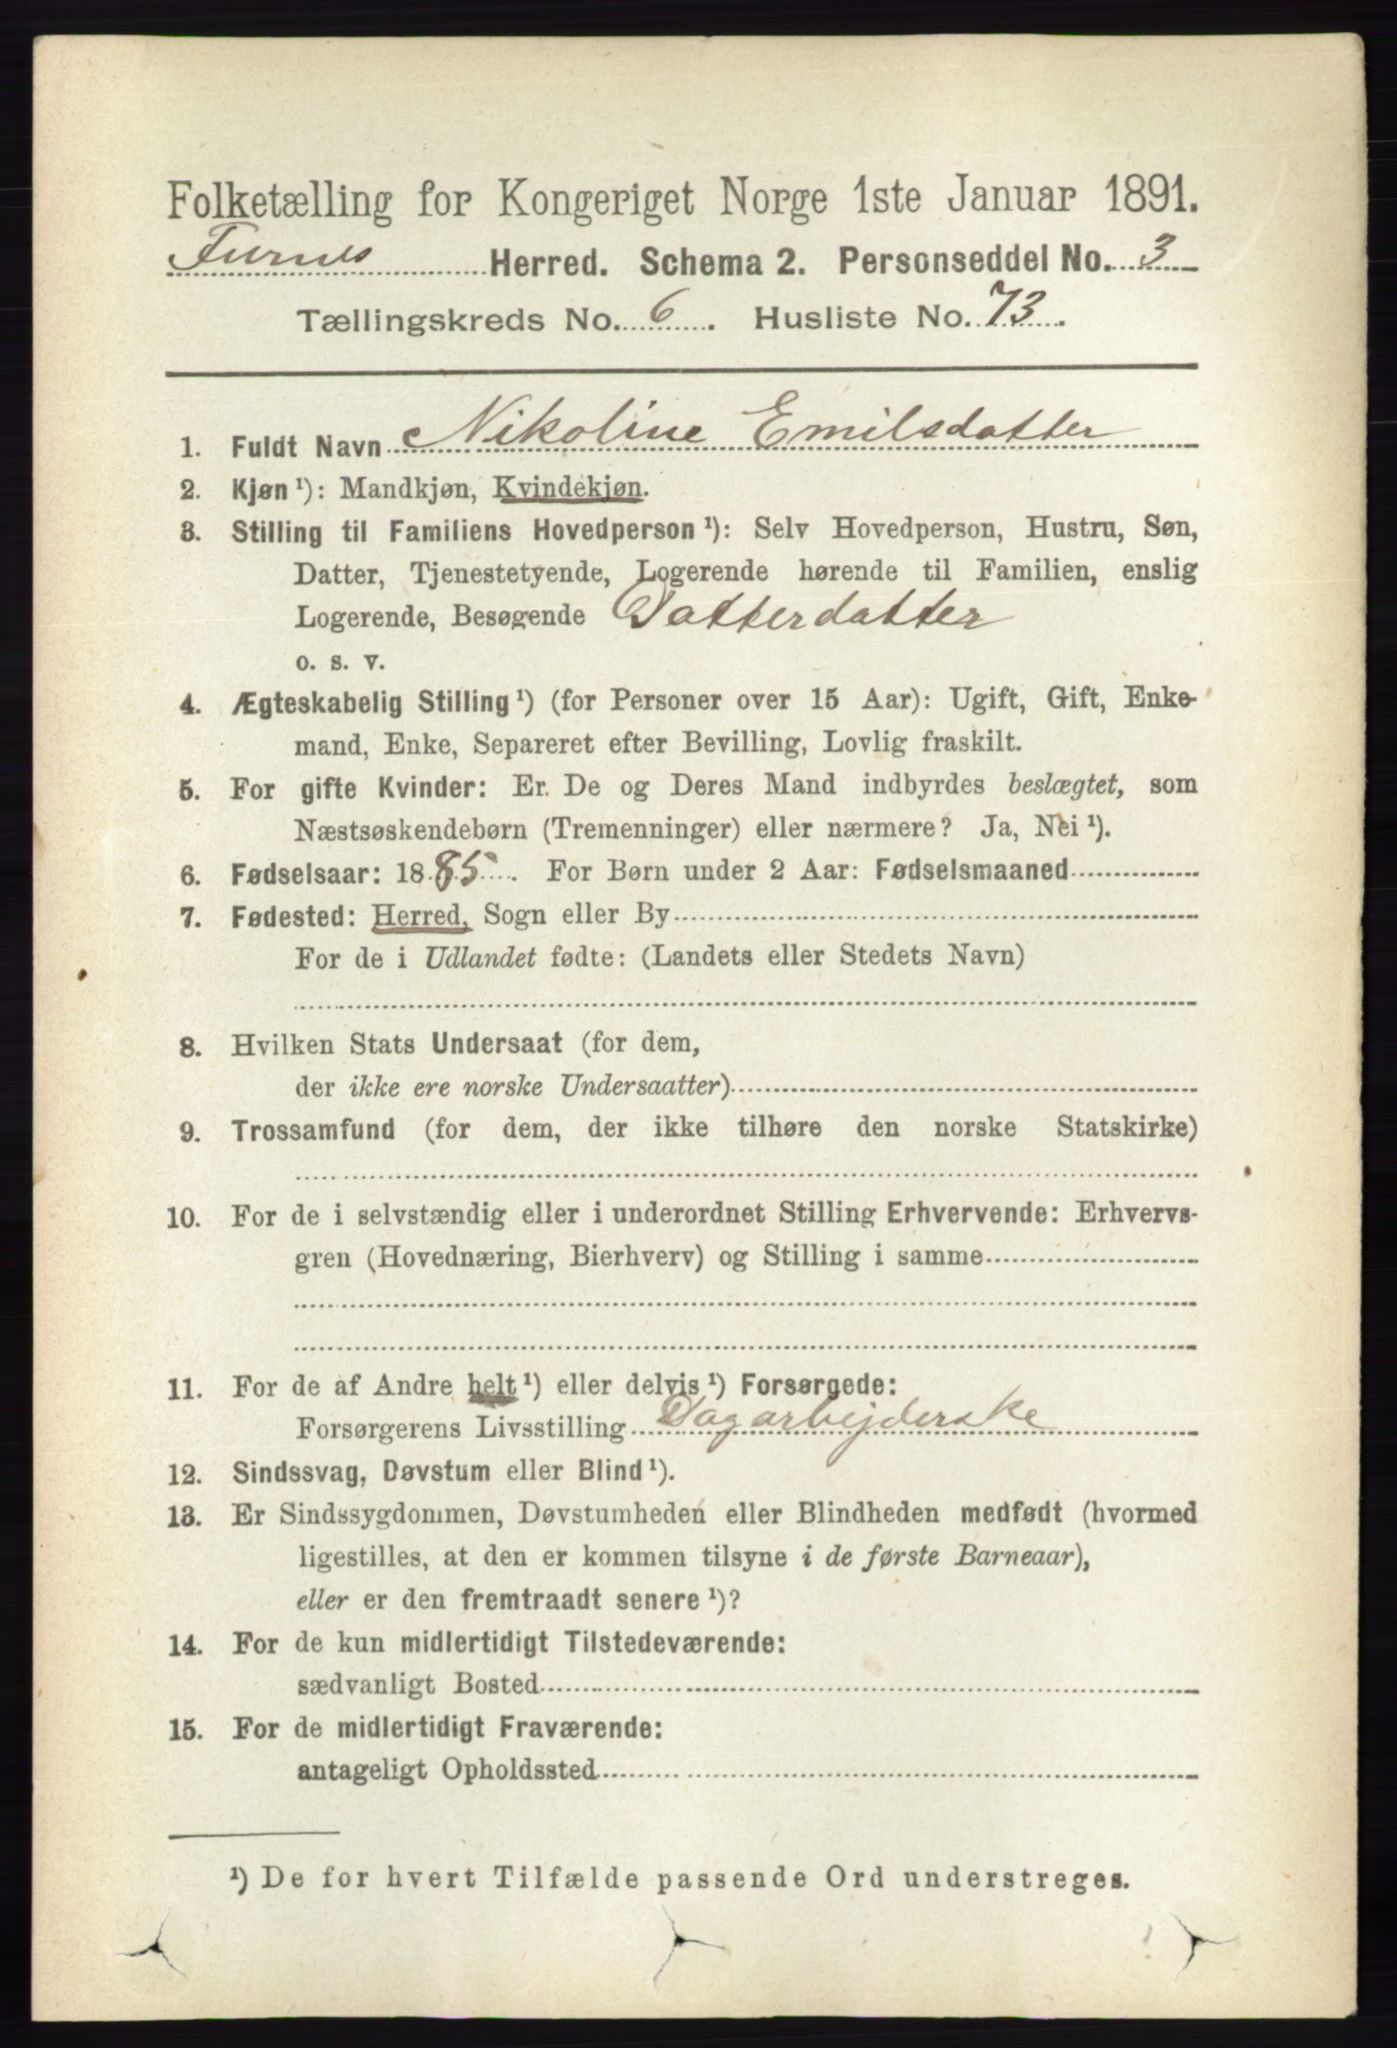 Folketælling for Kongeriget Norge 1ste Januar 1891.
Furnes Herred. Schema 2. Personseddel No. 3
Tællingskreds No. 6. Husliste No. 73.
1. Fuldt Navn Nikoline Emilsdatter
2. Kjøn¹): Mandkjøn, Kvindekjøn.
3. Stilling til Familiens Hovedperson¹): Selv Hovedperson, Hustru, Søn,
Datter, Tjenestetyende, Logerende hørende til Familien, enslig
Logerende, Besøgende Datterdatter
o. s. v.
4. Ægteskabelig Stilling¹) (for Personer over 15 Aar): Ugift, Gift, Enke-
mand, Enke, Separeret efter Bevilling, Lovlig fraskilt.
5. For gifte Kvinder: Er De og Deres Mand indbyrdes beslægtet, som
Næstsøskendebørn (Tremenninger) eller nærmere? Ja, Nei¹).
6. Fødselsaar: 1885. For Børn under 2 Aar: Fødselsmaaned
7. Fødested: Herred, Sogn eller By
For de i Udlandet fødte: (Landets eller Stedets Navn)
8. Hvilken Stats Undersaat (for dem,
der ikke ere norske Undersaatter)
9. Trossamfund (for dem, der ikke tilhøre den norske Statskirke)
10. For de i selvstændig eller i underordnet Stilling Erhvervende: Erhvervs-
gren (Hovednæring, Bierhverv) og Stilling i samme
11. For de af Andre helt¹) eller delvis¹) Forsørgede:
Forsørgerens Livsstilling Dagarbejderske
12. Sindssvag, Døvstum eller Blind¹).
13. Er Sindssygdommen, Døvstumheden eller Blindheden medfødt (hvormed
ligestilles, at den er kommen tilsyne i de første Barneaar),
eller er den fremtraadt senere¹)?
14. For de kun midlertidigt Tilstedeværende:
sædvanligt Bosted
15. For de midlertidigt Fraværende:
antageligt Opholdssted
¹) De for hvert Tilfælde passende Ord understreges.